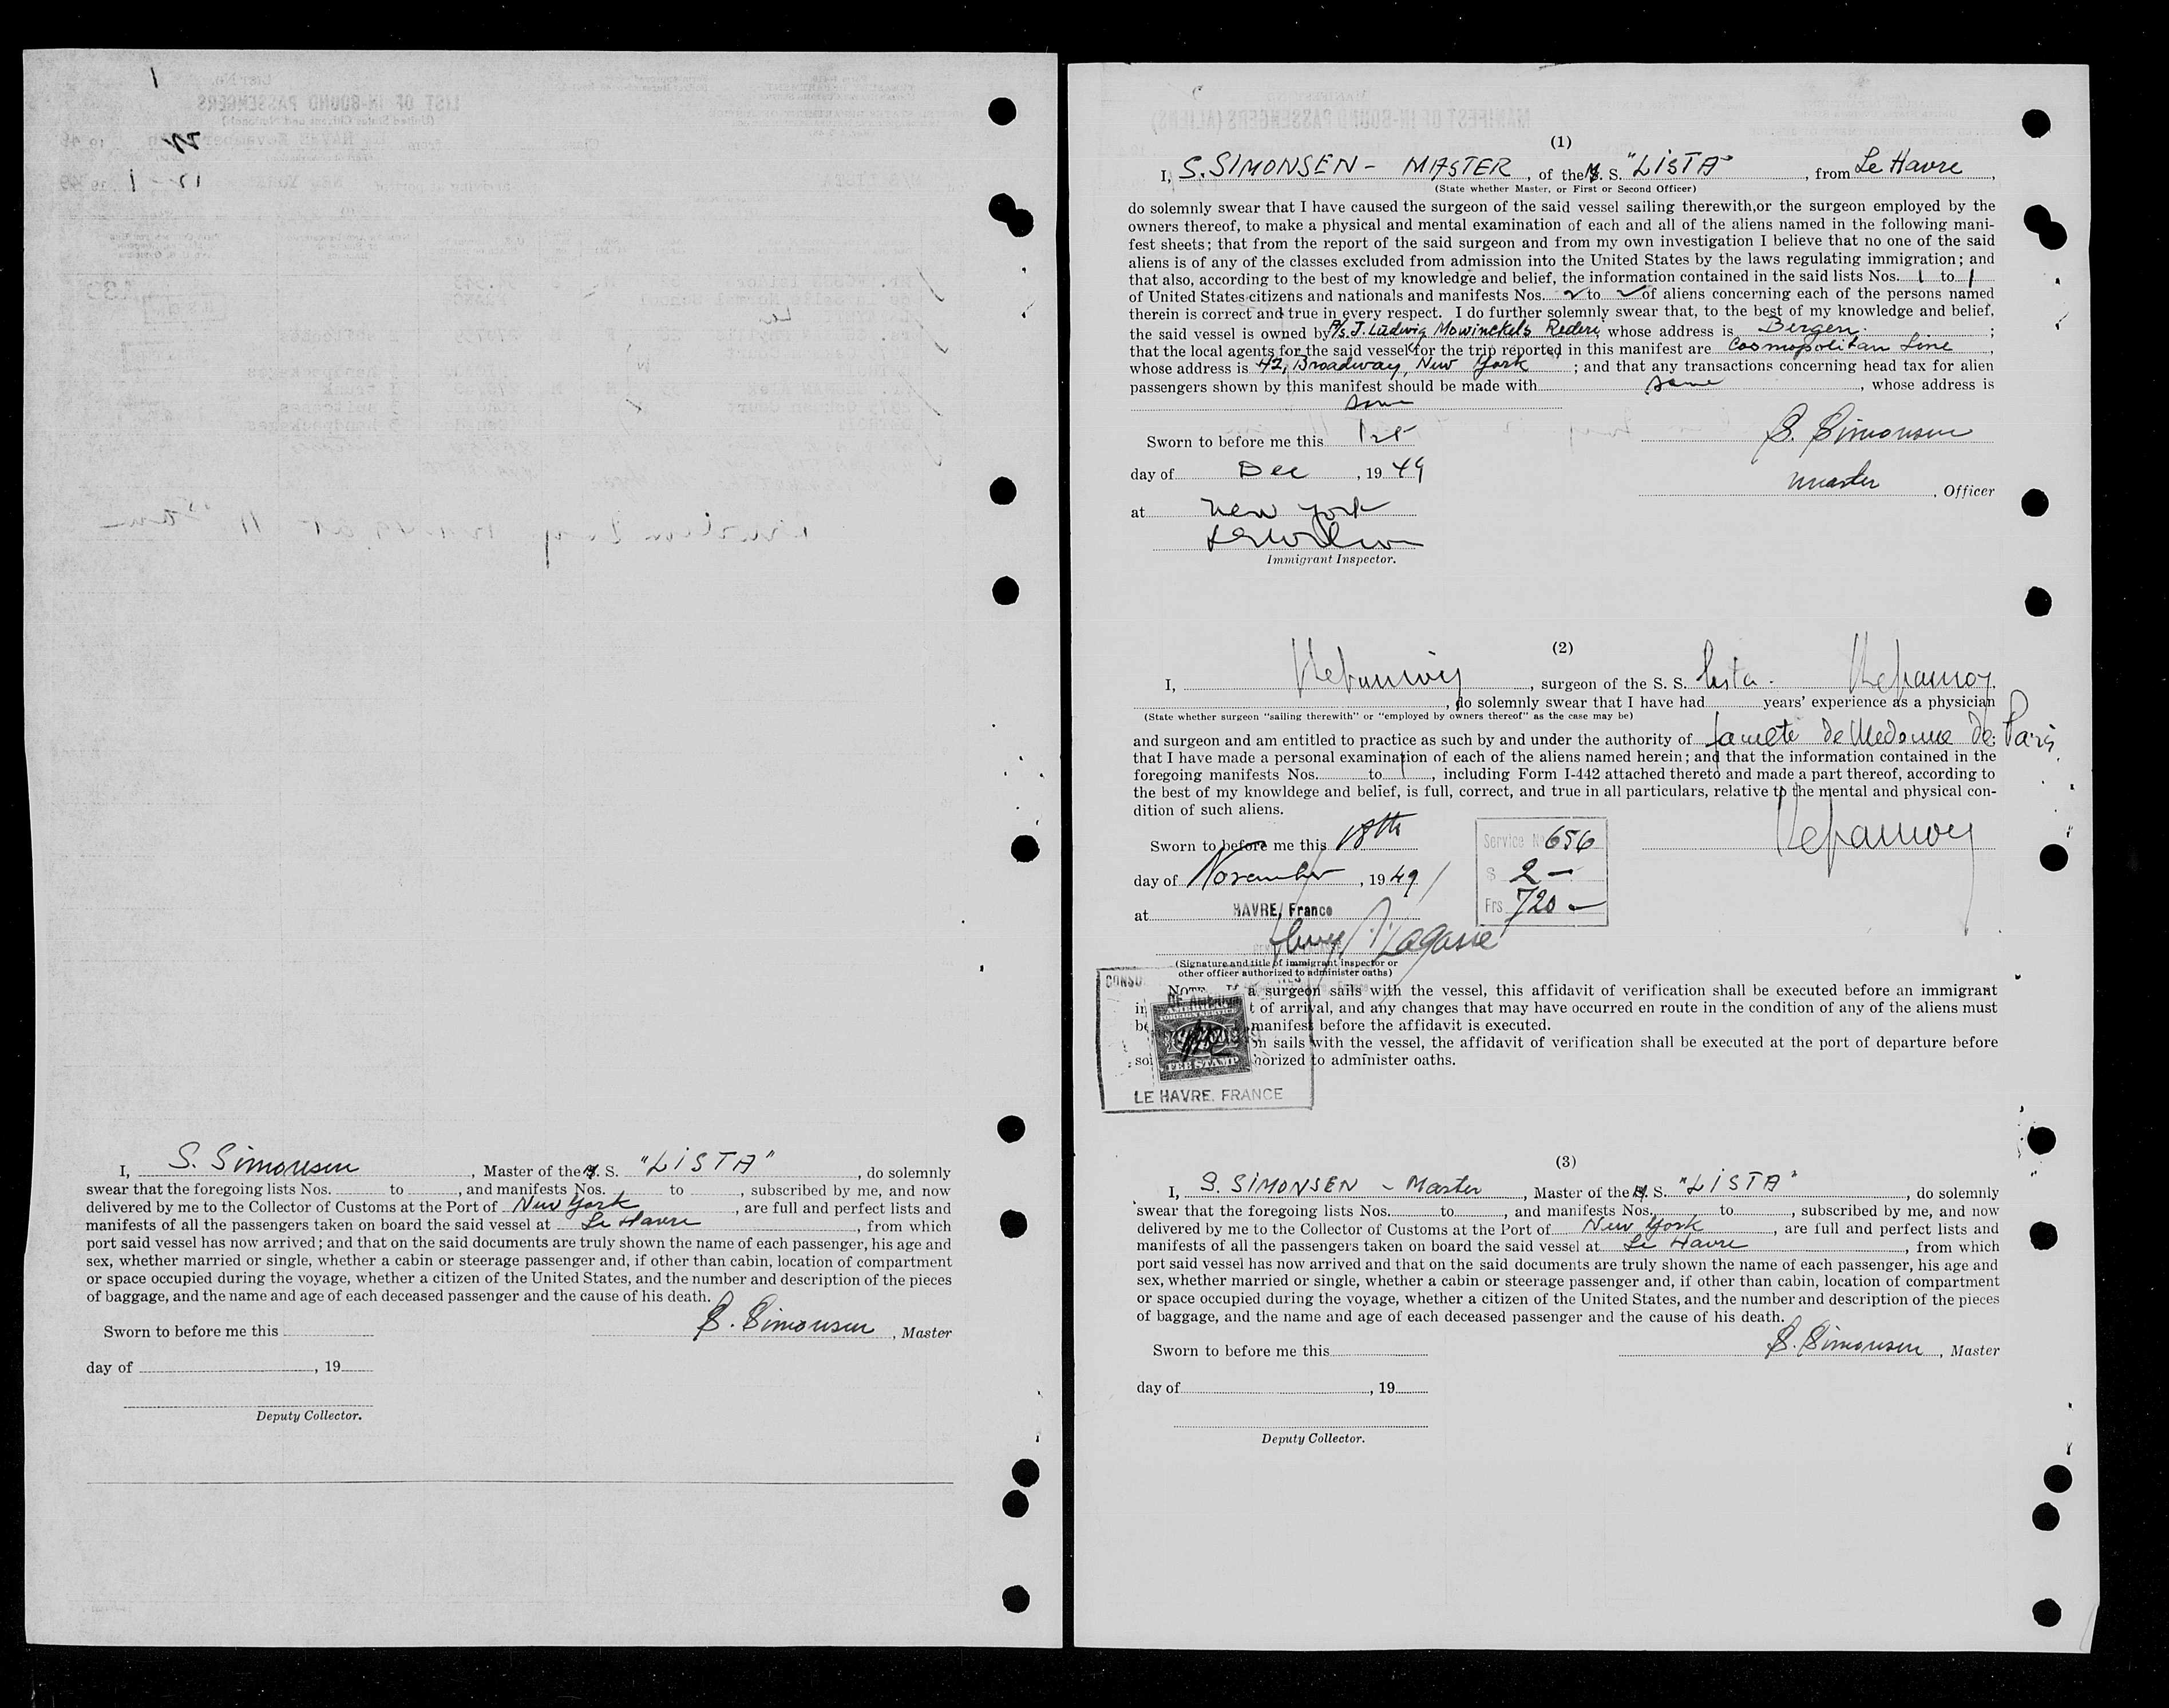 I, S. Simonsen, Master of the M. S. "LISTA", do solemnly
swear that the foregoing lists Nos. to , and manifests Nos. to , subscribed by me, and now
delivered by me to the Collector of Customs at the Port of New York, are full and perfect lists and
manifests of all the passengers taken on board the said vessel at Le Havre, from which
port said vessel has now arrived; and that on the said documents are truly shown the name of each passenger, his age and
sex, whether married or single, whether a cabin or steerage passenger and, if other than cabin, location of compartment
or space occupied during the voyage, whether a citizen of the United States, and the number and description of the pieces
of baggage, and the name and age of each deceased passenger and the cause of his death.
S. Simonsen, Master
Sworn to before me this
day of , 19
Deputy Collector.
(1)
I, S. SIMONSEN - MASTER, of the M. S. "LISTA", from Le Havre,
(State whether Master, or First or Second Officer)
do solemnly swear that I have caused the surgeon of the said vessel sailing therewith, or the surgeon employed by the
owners thereof, to make a physical and mental examination of each and all of the aliens named in the following mani-
fest sheets; that from the report of the said surgeon and from my own investigation I believe that no one of the said
aliens is of any of the classes excluded from admission into the United States by the laws regulating immigration; and
that also, according to the best of my knowledge and belief, the information contained in the said lists Nos. 1 to 1
of United States citizens and nationals and manifests Nos. 2 to 2 of aliens concerning each of the persons named
therein is correct and true in every respect. I do further solemnly swear that, to the best of my knowledge and belief,
the said vessel is owned by A/S. J. Ludwig Mowinckels Rederi, whose address is Bergen. ;
that the local agents for the said vessel for the trip reported in this manifest are Cosmopolitan Line,
whose address is 42, Broadway, New York ; and that any transactions concerning head tax for alien
passengers shown by this manifest should be made with same, whose address is
same
Sworn to before me this 1st
day of Dec, 19 49
at New York
Immigrant Inspector.
S. Simonsen
Master, Officer
(2)
I, , surgeon of the S. S. Lista.
, do solemnly swear that I have had years' experience as a physician
(State whether surgeon "sailing therewith" or "employed by owners thereof" as the case may be)
and surgeon and am entitled to practice as such by and under the authority of de Paris
that I have made a personal examination of each of the aliens named herein; and that the information contained in the
foregoing manifests Nos. to 1, including Form I-442 attached thereto and made a part thereof, according to
the best of my knowldege and belief, is full, correct, and true in all particulars, relative to the mental and physical con-
dition of such aliens.
Sworn to before me this 18th
day of November, 19 49
at HAVRE, France
Service No 656
$ 2 -
Frs 720 -
(Signature and title of immigrant inspector or
other officer authorized to administer oaths)
a surgeon sails with the vessel, this affidavit of verification shall be executed before an immigrant
t of arrival, and any changes that may have occurred en route in the condition of any of the aliens must
be manifest before the affidavit is executed.
on sails with the vessel, the affidavit of verification shall be executed at the port of departure before
so horized to administer oaths.
AMERICAN
FOREIGN SERVICE
FEE STAMP
LE HAVRE, FRANCE
(3)
I, S. SIMONSEN - Master, Master of the M. S. "LISTA", do solemnly
swear that the foregoing lists Nos. to , and manifests Nos. to , subscribed by me, and now
delivered by me to the Collector of Customs at the Port of New York, are full and perfect lists and
manifests of all the passengers taken on board the said vessel at Le Havre, from which
port said vessel has now arrived and that on the said documents are truly shown the name of each passenger, his age and
sex, whether married or single, whether a cabin or steerage passenger and, if other than cabin, location of compartment
or space occupied during the voyage, whether a citizen of the United States, and the number and description of the pieces
of baggage, and the name and age of each deceased passenger and the cause of his death.
S. Simonsen, Master
Sworn to before me this
day of , 19
Deputy Collector.